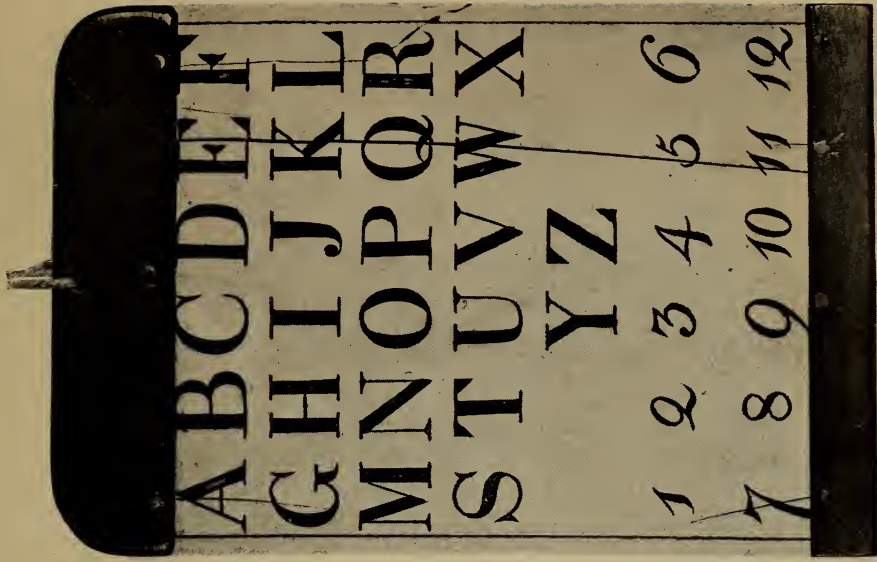 A B C D E F
G H I J K L
M N O P Q R
S T U V W X
Y Z
1 2 3 4 5 6
7 8 9 10 11 12